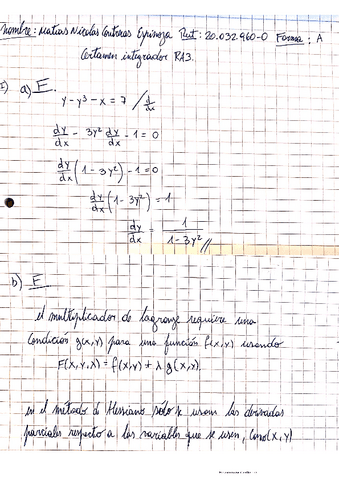 Nombre: Matias Nicolas Contreras Espinoza Rut: 20.032.960-0 Forma: A
Certamen integrador RA3.
I) a) F.
y - y³ - x = 7 / d/dx
dy/dx - 3y² dy/dx - 1 = 0
dy/dx (1 - 3y²) - 1 = 0
dy/dx (1 - 3y²) = 1
dy/dx = 1/(1 - 3y²) //
b) F
el multiplicador de lagrange requiere una
condición g(x,y) para una función f(x,y) usando
F(x,y,λ) = f(x,y) + λ g(x,y).
en el método de Hessiano sólo se usan las derivadas
parciales respecto a las variables que se usen, (como (x,y)